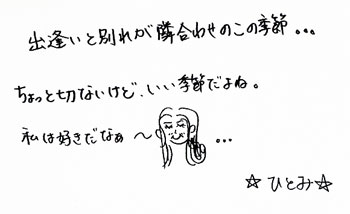 出逢いと別れが隣合わせのこの季節...
ちょっと切ないけど、いい季節だよね。
私は好きだなぁ〜 ...
☆ひとみ☆